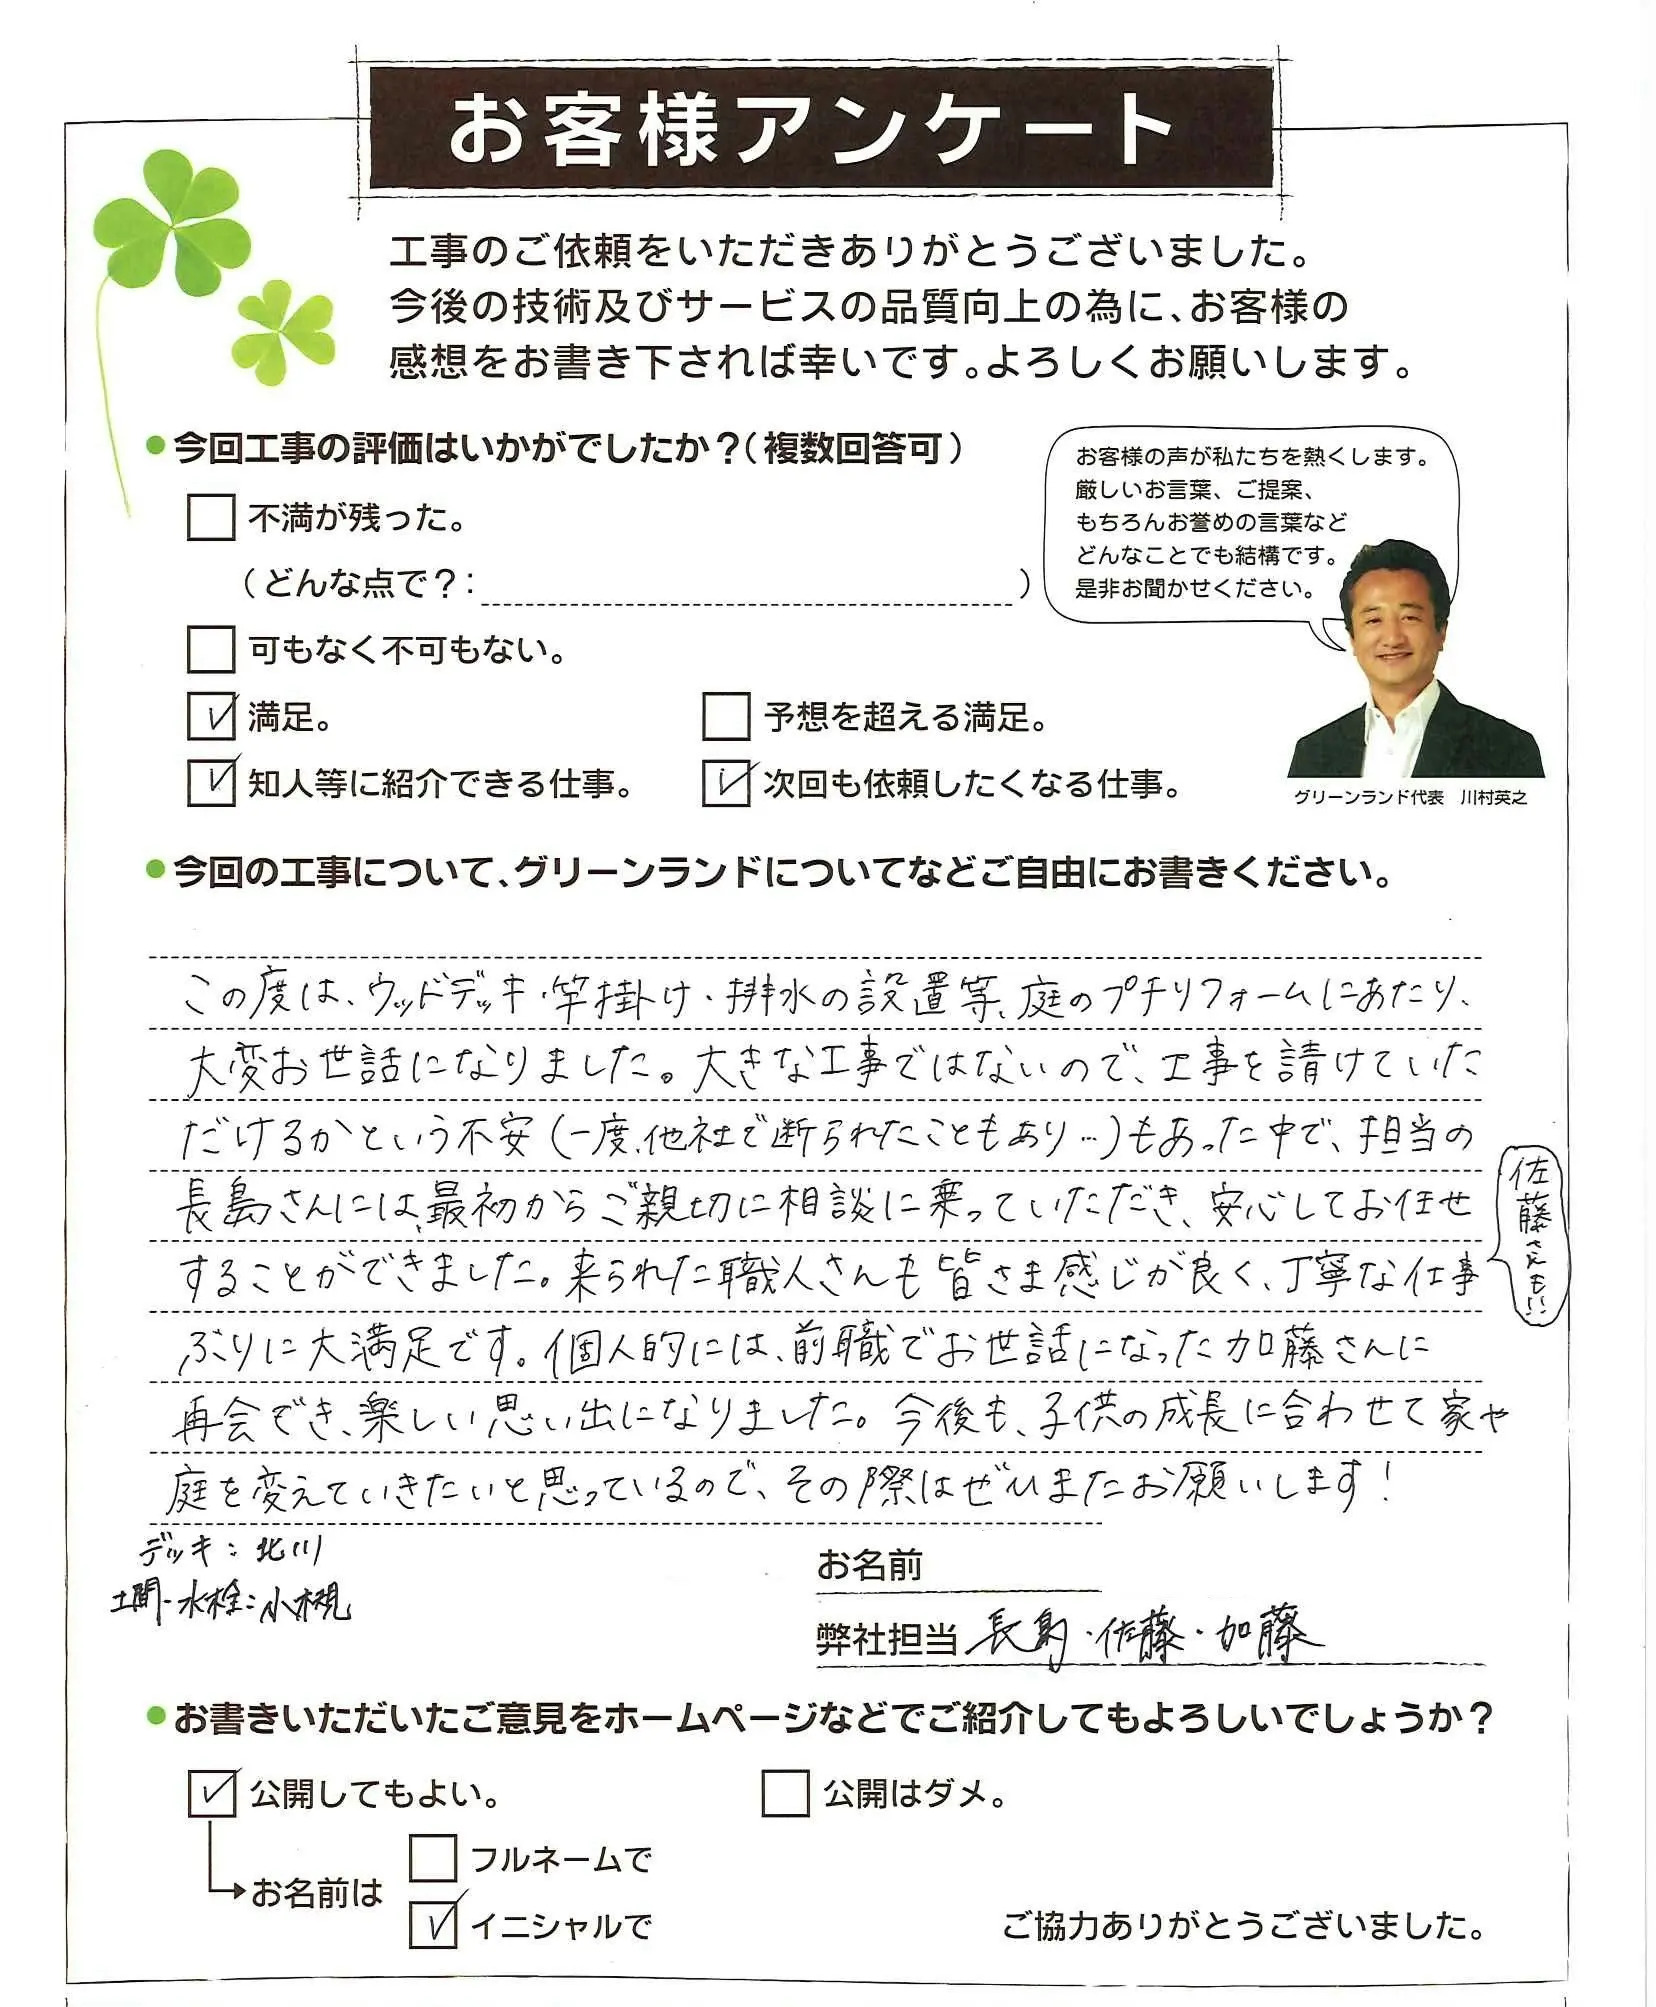 お客様アンケート
工事のご依頼をいただきありがとうございました。
今後の技術及びサービスの品質向上の為に、お客様の
感想をお書き下されば幸いです。よろしくお願いします。
●今回工事の評価はいかがでしたか？（複数回答可）
不満が残った。
（どんな点で？：　）
可もなく不可もない。
満足。
予想を超える満足。
知人等に紹介できる仕事。
次回も依頼したくなる仕事。
お客様の声が私たちを熱くします。
厳しいお言葉、ご提案、
もちろんお誉めの言葉など
どんなことでも結構です。
是非お聞かせください。
グリーンランド代表　川村英之
●今回の工事について、グリーンランドについてなどご自由にお書きください。
この度は、ウッドデッキ・竿掛け・排水の設置等、庭のプチリフォームにあたり、
大変お世話になりました。大きな工事ではないので、工事を請けていた
だけるかという不安（一度、他社で断られたこともあり…）もあった中で、担当の
長島さんには、最初からご親切に相談に乗っていただき、安心してお任せ
することができました。来られた職人さんも皆さま感じが良く、丁寧な仕事
佐藤さんも!!
ぶりに大満足です。個人的には、前職でお世話になった加藤さんに
再会でき、楽しい思い出になりました。今後も、子供の成長に合わせて家や
庭を変えていきたいと思っているので、その際はぜひまたお願いします！
デッキ：北川
土間・水栓：小槻
お名前
弊社担当 長島・佐藤・加藤
●お書きいただいたご意見をホームページなどでご紹介してもよろしいでしょうか？
公開してもよい。
公開はダメ。
お名前は
フルネームで
イニシャルで
ご協力ありがとうございました。